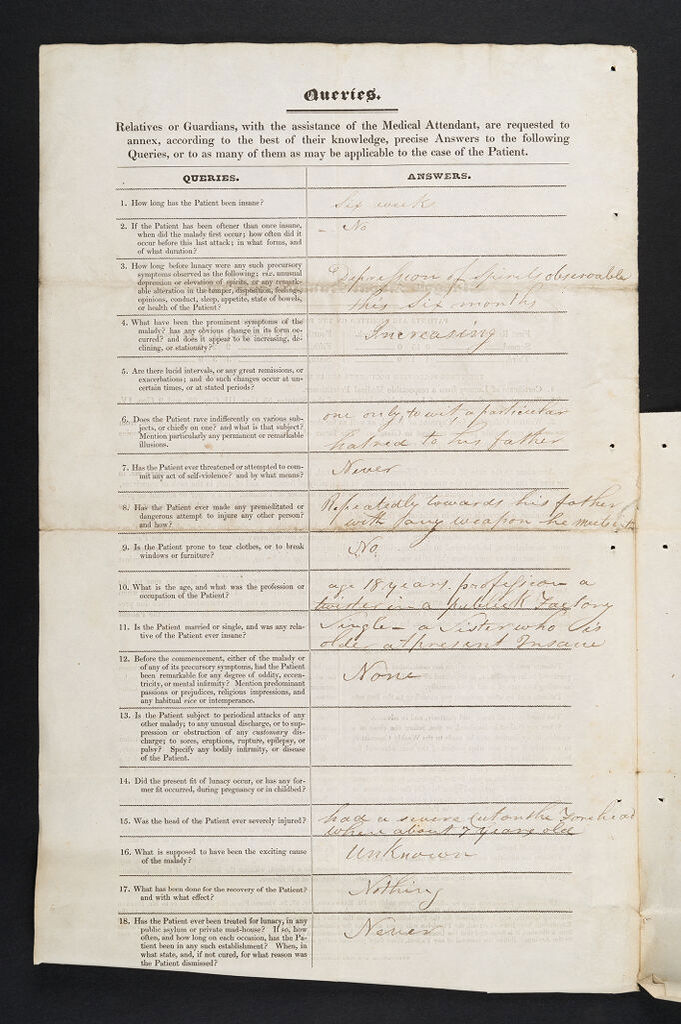 Queries.
Relatives or Guardians, with the assistance of the Medical Attendant, are requested to
annex, according to the best of their knowledge, precise Answers to the following
Queries, or to as many of them as may be applicable to the case of the Patient.
QUERIES.
ANSWERS.
1. How long has the Patient been insane?
Six weeks
2. If the Patient has been oftener than once insane,
when did the malady first occur; how often did it
occur before this last attack; in what forms, and
of what duration?
– No
3. How long before lunacy were any such precursory
symptoms observed as the following: viz. unusual
depression or elevation of spirits, or any remark-
able alteration in the temper, disposition, feelings,
opinions, conduct, sleep, appetite, state of bowels,
or health of the Patient?
Depression of Spirits observable
this Six months
4. What have been the prominent symptoms of the
malady? has any obvious change in its form oc-
curred? and does it appear to be increasing, de-
clining, or stationary?
Increasing
5. Are there lucid intervals, or any great remissions, or
exacerbations; and do such changes occur at un-
certain times, or at stated periods?
6. Does the Patient rave indifferently on various sub-
jects, or chiefly on one? and what is that subject?
Mention particularly any permanent or remarkable
illusions.
one only, to wit, a particular
hatred to his father
7. Has the Patient ever threatened or attempted to com-
mit any act of self-violence? and by what means?
Never
8. Has the Patient ever made any premeditated or
dangerous attempt to injure any other person?
and how?
Repeatedly towards his father
with any weapon he
9. Is the Patient prone to tear clothes, or to break
windows or furniture?
No
10. What is the age, and what was the profession or
occupation of the Patient?
age 18 years profession a
twister in a publick Factory
11. Is the Patient married or single, and was any rela-
tive of the Patient ever insane?
Single – a Sister who is
older at present Insane
12. Before the commencement, either of the malady or
of any of its precursory symptoms, had the Patient
been remarkable for any degree of oddity, eccen-
tricity, or mental infirmity? Mention predominant
passions or prejudices, religious impressions, and
any habitual vice or intemperance.
None
13. Is the Patient subject to periodical attacks of any
other malady; to any unusual discharge, or to sup-
pression or obstruction of any customary dis-
charge; to sores, eruptions, rupture, epilepsy, or
palsy? Specify any bodily infirmity, or disease
of the Patient.
14. Did the present fit of lunacy occur, or has any for-
mer fit occurred, during pregnancy or in childbed?
15. Was the head of the Patient ever severely injured?
had a severe cut on the Forehead
when about 7 years old
16. What is supposed to have been the exciting cause
of the malady?
Unknown
17. What has been done for the recovery of the Patient?
and with what effect?
Nothing
18. Has the Patient ever been treated for lunacy, in any
public asylum or private mad-house? If so, how
often, and how long on each occasion, has the Pa-
tient been in any such establishment? When, in
what state, and, if not cured, for what reason was
the Patient dismissed?
Never